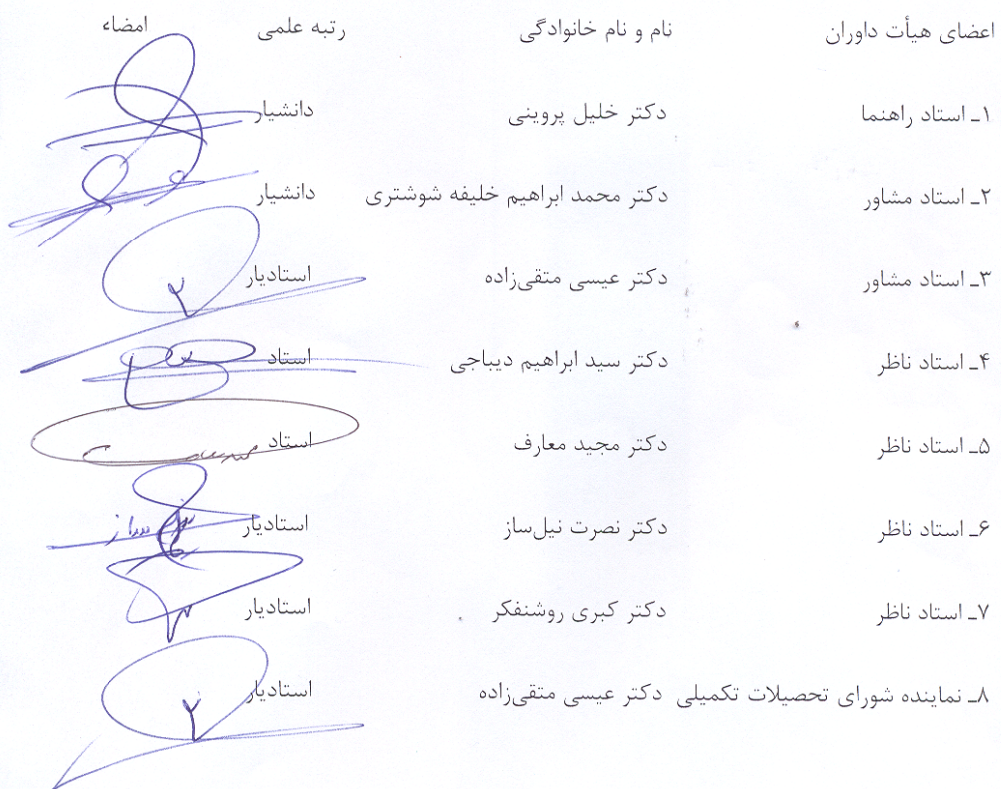 اعضای هیأت داوران نام و نام خانوادگی رتبه علمی امضاء
۱ـ استاد راهنما دکتر خلیل پروینی دانشیار
۲ـ استاد مشاور دکتر محمد ابراهیم خلیفه شوشتری دانشیار
۳ـ استاد مشاور دکتر عیسی متقی‌زاده استادیار
۴ـ استاد ناظر دکتر سید ابراهیم دیباجی استاد
۵ـ استاد ناظر دکتر مجید معارف استاد
۶ـ استاد ناظر دکتر نصرت نیل‌ساز استادیار
۷ـ استاد ناظر دکتر کبری روشنفکر استادیار
۸ـ نماینده شورای تحصیلات تکمیلی دکتر عیسی متقی‌زاده استادیار